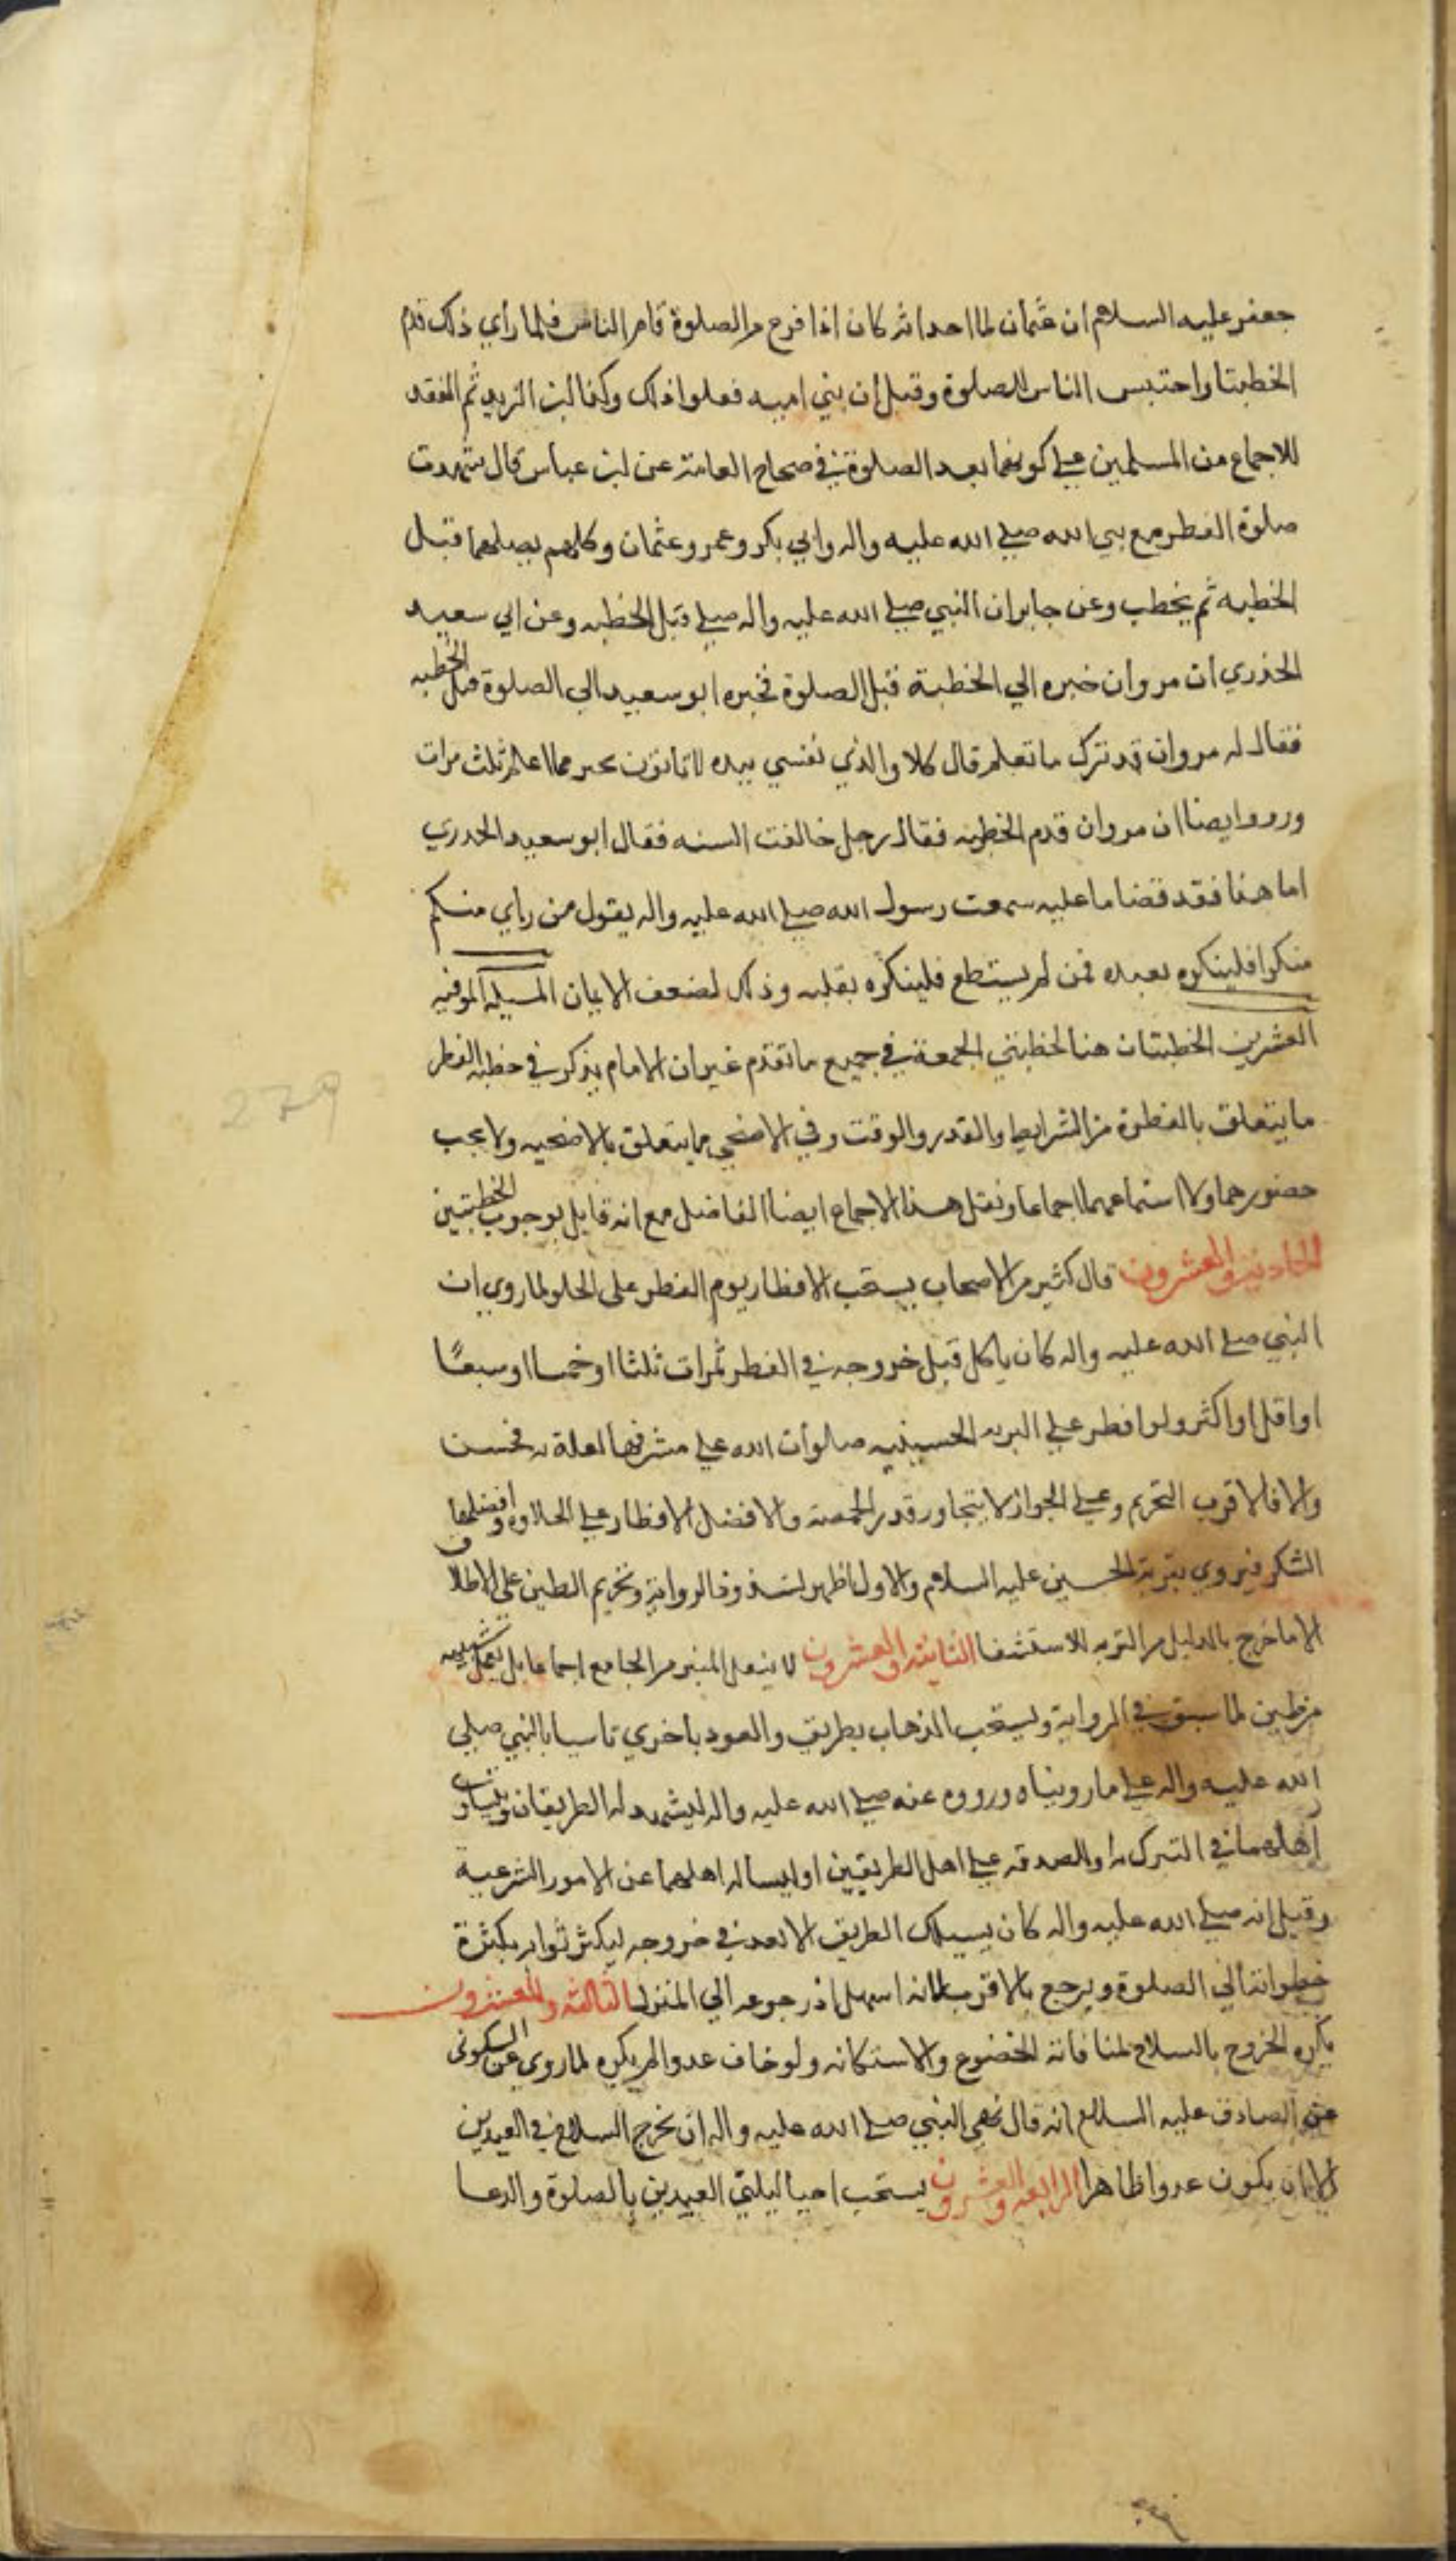 جعفر عليه السلام ان عثمان لما احداثه كان اذا فرغ من الصلوة قام الناس فلما رأي ذلك قدم
الخطبتا واحتبس الناس للصلوة وقيل ان بني اميه فعلوا ذلك وكذا ابن الزبير ثم انعقد
للاجماع من المسلمين علي كونهما بعد الصلوة في صحاح العامة عن ابن عباس قال شهدت
صلوة الفطر مع نبي الله صلي الله عليه واله وابي بكر وعمر وعثمان وكلهم يصليها قبل
الخطبه ثم يخطب وعن جابر ان النبي صلي الله عليه واله صلي قبل الخطبه وعن ابي سعيد
الخذري ان مروان خبره الي الخطبة قبل الصلوة فجبره ابو سعيد الي الصلوة قبل الخطبه
فقال له مروان قد ترك ما تعلم قال كلا والذي نفسي بيده لا تاتون بخير مما اعلم ثلث مرات
ورووا ايضا ان مروان قدم الخطبه فقال رجل خالفت السنه فقال ابو سعيد الخدري
اما هذا فقد قضا ما عليه سمعت رسول الله صلي الله عليه واله يقول من رأي منكم
منكرا فلينكره بيده فمن لم يستطع فلينكره بقلبه وذلك لضعف الايمان المسيله الموفيه
العشرين الخطبتان هنا كخطبتي الجمعة في جميع ما تقدم غير ان الامام يذكر في خطبة الفطر
ما يتعلق بالفطرة من الشرايط والقدر والوقت وفي الاضحي ما يتعلق بالاضحيه ولا يجب
حضورهما ولا استماعهما اجماعا ونقل هذا الاجماع ايضا الفاضل مع انه قايل بوجوب الخطبتين
الحادية والعشرون قال كثير من الاصحاب يستحب الافطار يوم الفطر علي الحلو لما روي ان
النبي صلي الله عليه واله كان ياكل قبل خروجه في الفطر تمرات ثلثا او خمسا او سبعا
او اقل او اكثر ولو افطر علي التربه الحسينيه صلوات الله علي مشرفها لعلة به فحسن
والا فالاقرب التحريم وعلي الجواز لا يتجاوز قدر الحمصة والافضل الافطار علي الحلاوه وافضلها
الشكر فيروي بتربة الحسين عليه السلام والاول اظهر لشذوذ الرواية وتحريم الطين علي الاطلاق
الا ما خرج بالدليل من التربه للاستشفا الثانية والعشرون لا ينقل المنبر من الجامع اجماعا بل يعمل شبيهه
من طين لما سبق في الرواية ويستحب الذهاب بطريق والعود باخري تاسيا بالنبي صلي
الله عليه واله علي ما رويناه ورووه عنه صلي الله عليه واله ليشهد له الطريقان ويتساوى
اهلهما في التبرك به او الصدقه علي اهل الطريقين او ليساله اهلهما عن الامور الشرعية
وقيل انه صلي الله عليه واله كان يسلك الطريق الابعد في خروجه ليكثر ثوابه بكثرة
خطواته الي الصلوة ويرجع بالاقرب لانه اسهل اذ رجوعه الي المنزل الثالثة والعشرون
يكره الخروج بالسلاح لمنافاته الخضوع والاستكانه ولو خاف عدوا لم يكره لما روي عن السكوني
عن الصادق عليه السلام انه قال نهي النبي صلي الله عليه واله ان يخرج السلاح في العيدين
الا ان يكون عدوا ظاهرا الرابعة والعشرون يستحب احيا ليلتي العيدين بالصلوة والدعا
279